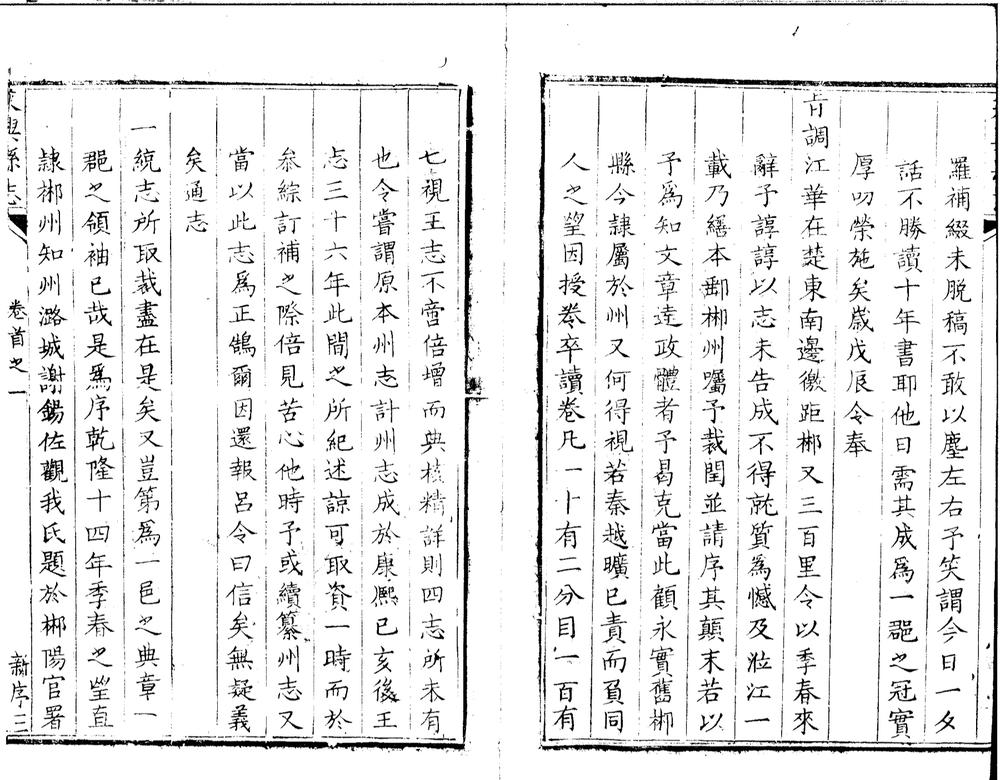 羅補綴未脫稿不敢以塵左右予笑謂今日一夕
話不勝讀十年書耶他日需其成爲一郡之冠實
厚叨榮施矣歲戊辰令奉
調江華在楚東南邊徼距郴又三百里令以季春來
辭予諄諄以志未告成不得就質爲憾及涖江一
載乃繕本郵郴州囑予裁閏並請序其顛末若以
予爲知文章達政體者予曷克當此顧永實舊郴
縣今隸屬於州又何得視若秦越曠已責而負同
人之望因授卷卒讀卷凡一十有二分目一百有
七視王志不啻倍增而典核精詳則四志所未有
也令嘗謂原本州志計州志成於康熙己亥後王
志三十六年此間之所紀述諒可取資一時而於
叅綜訂補之際倍見苦心他時予或續纂州志又
當以此志爲正鵠爾因還報呂令曰信矣無疑義
矣通志
一統志所取裁盡在是矣又豈第爲一邑之典章一
郡之領袖已哉是爲序乾隆十四年季春之望直
隸郴州知州潞城謝錫佐觀我氏題於郴陽官署
興縣志
卷首之一
新序三